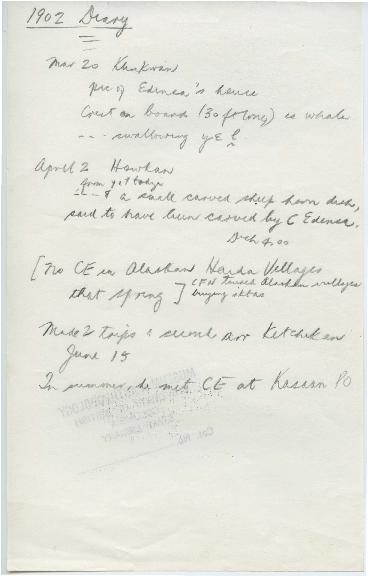 1902 Diary
Mar 20 Klinkwan
pic of Edensa's house
Crest on boards (30 ft long) is whale
--- swallowing
April 2 Howkan
from
a small carved sheep horn dish,
said to have been carved by C Edensa.
Dish 4.00
[No CE in Alaskan Haida Villages
that spring] CFN toured Alaskan villages
buying iktas
Made 2 trips & second arr Ketchikan
June 15
In summer he met CE at Kasaan PO